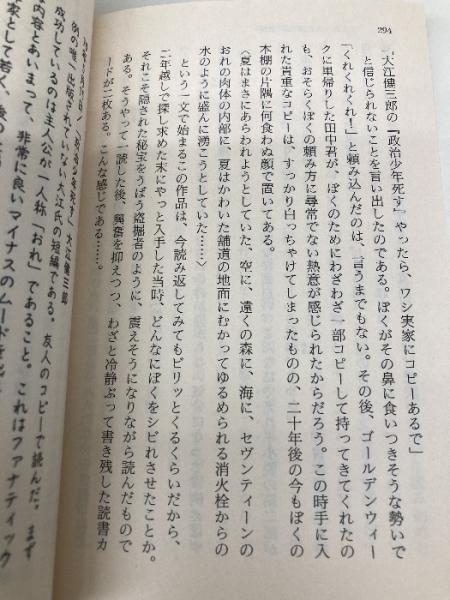 294
「大江健三郎の『政治少年死す』やったら、ワシ実家にコピーあるで」
と信じられないことを言い出したのである。ぼくがその鼻に食いつきそうな勢いで
「くれくれくれ！」と頼み込んだのは、言うまでもない。その後、ゴールデンウィー
クに里帰りした田中君が、ぼくのためにわざわざ一部コピーして持ってきてくれたの
も、おそらくぼくの頼み方に尋常でない熱意が感じられたからだろう。この時手に入
れた貴重なコピーは、すっかり白っちゃけてしまったものの、二十年後の今もぼくの
本棚の片隅に何食わぬ顔で置いてある。
〈夏はまさにあらわれようとしていた、空に、遠くの森に、海に、セヴンティーンの
おれの肉体の内部に、夏はかわいた舗道の地面にむかってゆるめられる消火栓からの
水のように盛んに湧こうとしていた……〉
という一文で始まるこの作品は、今読み返してみてもビリッとくるくらいだから、
二年越しで探し求めた末にやっと入手した当時、どんなにぼくをシビれさせたことか。
それこそ隠された秘宝をうばう盗掘者のように、震えそうになりながら読んだもので
ある。そうやって一読した後、興奮を抑えつつ、わざと冷静ぶって書き残した読書カ
ードが二枚ある。こんな感じである……。
大江健三郎
例の唯一出版されていない大江氏の短編である。友人のコピーで読んだ。まず
成功しているのは主人公が一人称「おれ」であること。これはファナティック
内容とあいまって、非常に良いマイナスのムードを出
家として若く、後の